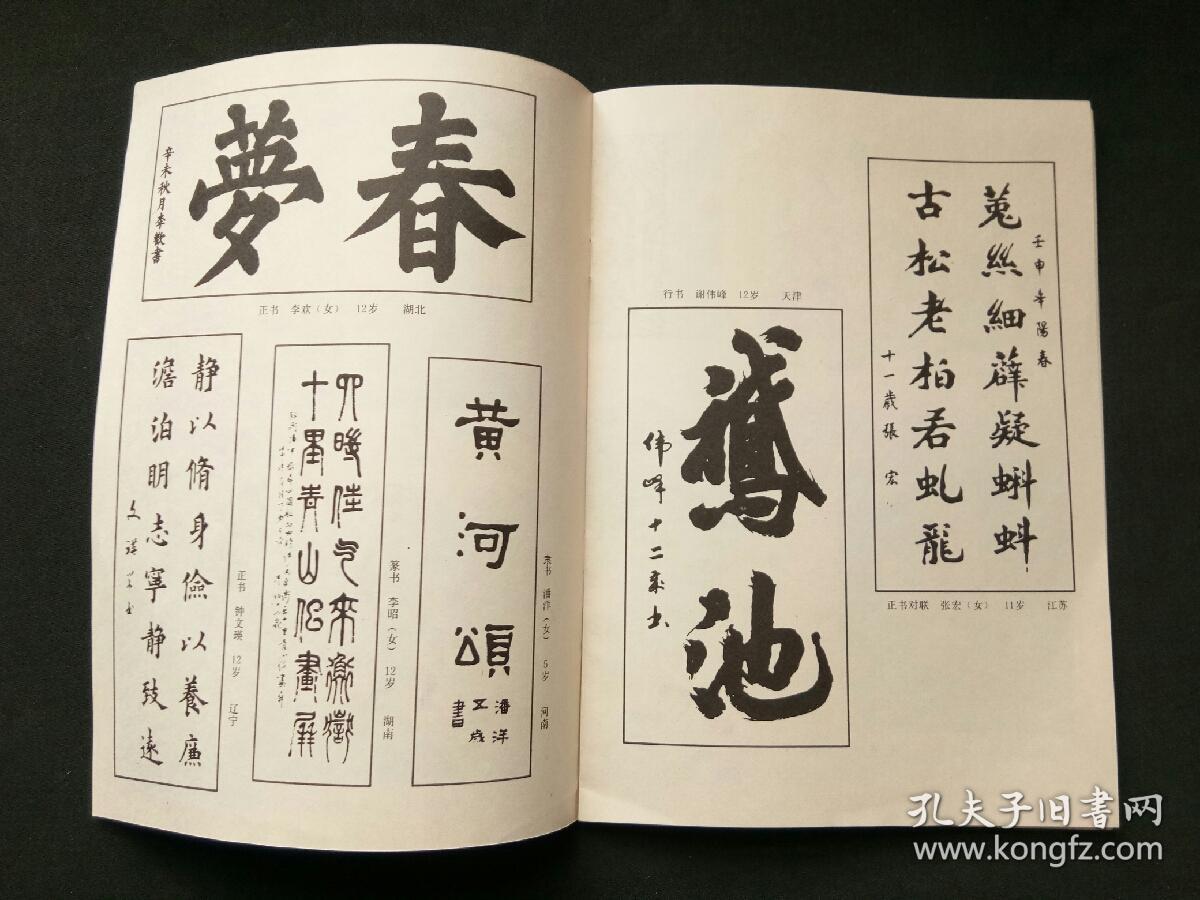 春夢
辛未秋月李歡書
正书 李欢（女） 12岁 湖北
静以脩身儉以養廉
澹泊明志寧静致遠
正书 钟文瑛 12岁 辽宁
十里青山似畫屏
篆书 李昭（女） 12岁 湖南
黄河頌
潘洋
五歲
書
隶书 潘洋（女） 5岁 河南
行书 谢伟峰 12岁 天津
鵞池
伟峰十二岁书
壬申年陽春
菟絲細薜疑蝌蚪
古松老柏若虬龍
十一歲張宏
正书对联 张宏（女） 11岁 江苏
孔夫子旧書网
www.kongfz.com